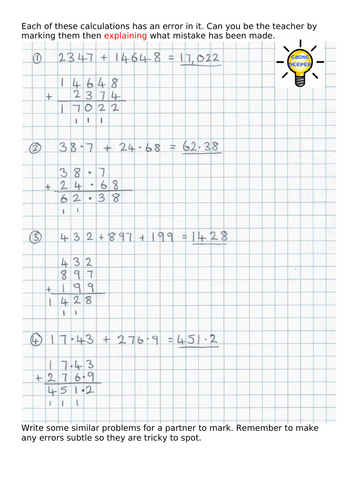 Each of these calculations has an error in it. Can you be the teacher by
marking them then explaining what mistake has been made.
GOING
DEEPER
① 2347 + 14648 = 17,022
14648
+ 2374
17022
1 1 1
② 38·7 + 24·68 = 62·38
38·7
+ 24·68
62·38
1 1
③ 432 + 897 + 199 = 1428
432
897
+ 199
1428
1 1
④ 17·43 + 276·9 = 451·2
17·43
+ 276·9
451·2
1 1 1
Write some similar problems for a partner to mark. Remember to make
any errors subtle so they are tricky to spot.